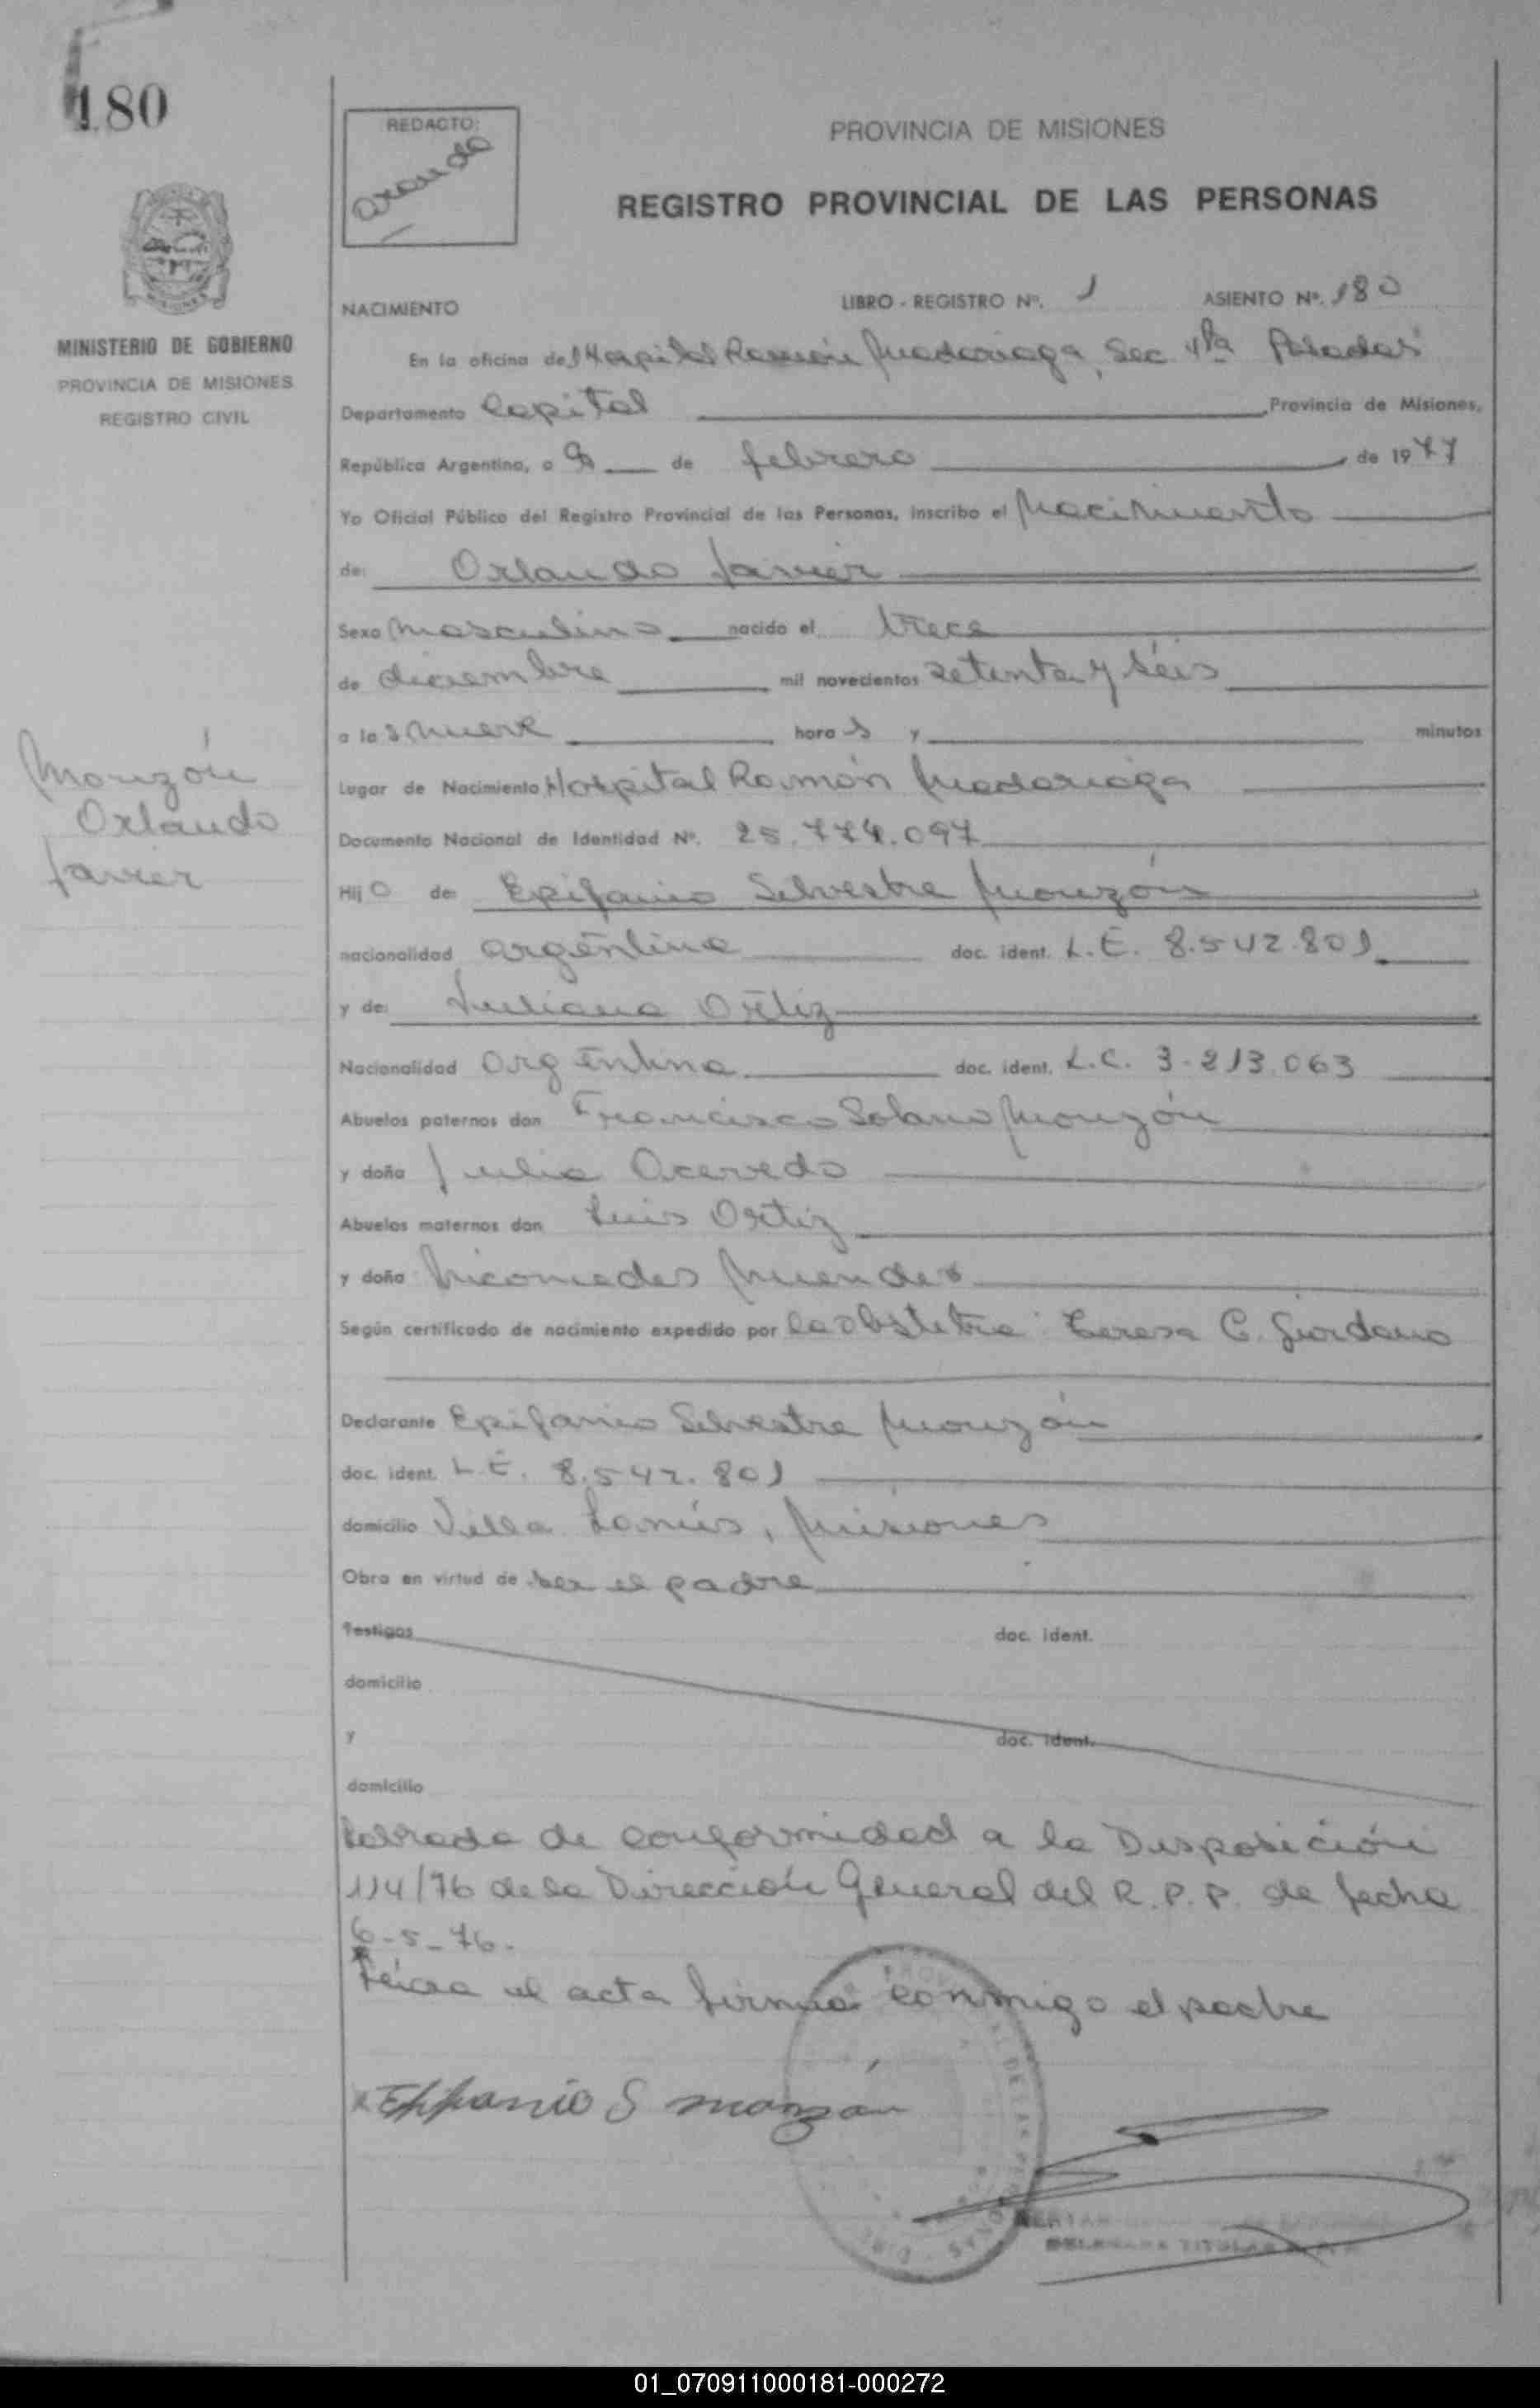 180
REDACTO:
PROVINCIA DE MISIONES
REGISTRO PROVINCIAL DE LAS PERSONAS
MINISTERIO DE GOBIERNO
PROVINCIA DE MISIONES
REGISTRO CIVIL
NACIMIENTO LIBRO - REGISTRO Nº. 1 ASIENTO Nº. 180
En la oficina del Hospital Ramón Madariaga, Sec 4ta Posadas
Departamento Capital Provincia de Misiones,
República Argentina, a 9 de febrero de 1977
Yo Oficial Público del Registro Provincial de las Personas, inscribo el Nacimiento
de: Orlando Javier
Sexo masculino nacido el trece
de diciembre mil novecientos setenta y séis
a las nueve horas y minutos
Monzón
Orlando
Javier
Lugar de Nacimiento Hospital Ramón Madariaga
Documento Nacional de Identidad Nº. 25.774.097
Hijo de: Epifanio Silvestre Monzón
nacionalidad argentina doc. ident. L.E. 8.542.801
y de: Juliana Ortiz
Nacionalidad argentina doc. ident. L.C. 3.213.063
Abuelos paternos don Francisco Solano Monzón
y doña Julia Acevedo
Abuelos maternos don Luis Ortiz
y doña Nicomedes Muendes
Según certificado de nacimiento expedido por la Obstetra: Teresa C. Giordano
Declarante Epifanio Silvestre Monzón
doc. ident. L.E. 8.542.801
domicilio Villa Lanús, Misiones
Obra en virtud de ser el padre
Testigos doc. ident.
domicilio
y doc. ident.
domicilio
Labrada de conformidad a la Disposición
114/76 de la Dirección General del R.P.P. de fecha
6-5-76.
Leída el acta firma conmigo el padre
x Epifanio S monzón
DELEGADA TITULAR
01_070911000181-000272